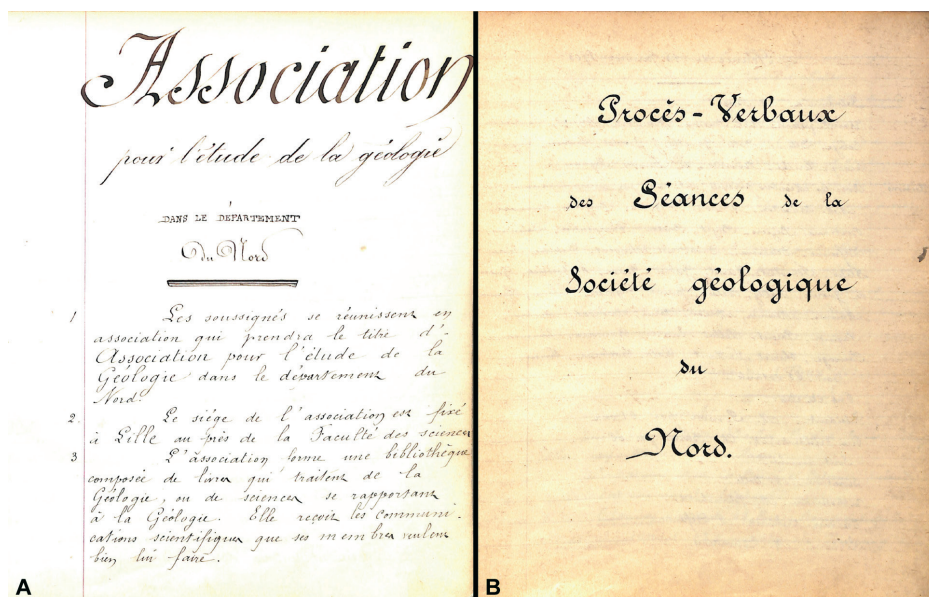 Association
pour l'étude de la géologie
DANS LE DÉPARTEMENT
du Nord
1 Les soussignés se réunissent en
association qui prendra le titre d'
Association pour l'étude de la
Géologie dans le département du
Nord.
2. Le siége de l'association est fixé
à Lille auprès de la Faculté des sciences
3 L'association forme une bibliothèque
composée de livres qui traitent de la
Géologie, ou de sciences se rapportant
à la Géologie. Elle reçoit les communi-
cations scientifiques que ses membres veulent
bien lui faire.
A
Procès-Verbaux
des Séances de la
Société géologique
du
Nord.
B